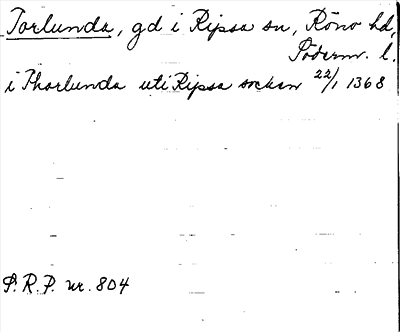 Torlunda, gd i Ripsa sn, Röno hd,
Söderm. l.
i Thorlunda uti Ripsa sockan 22/1 1368
S.R.P. nr. 804